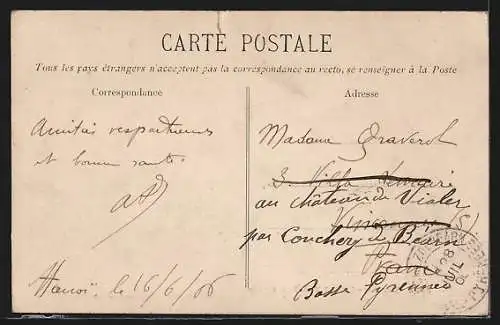 CARTE POSTALE
Tous les pays étrangers n'acceptent pas la correspondance au recto, se renseigner à la Poste
Correspondance
Adresse
Amitiés respectueuses
et bonne santé.
Hanoï, le 16/6/06
Madame Graverol
3 Villa
au château de Vialer
Vincennes
par Conchez de Béarn
France
Basse Pyrennées